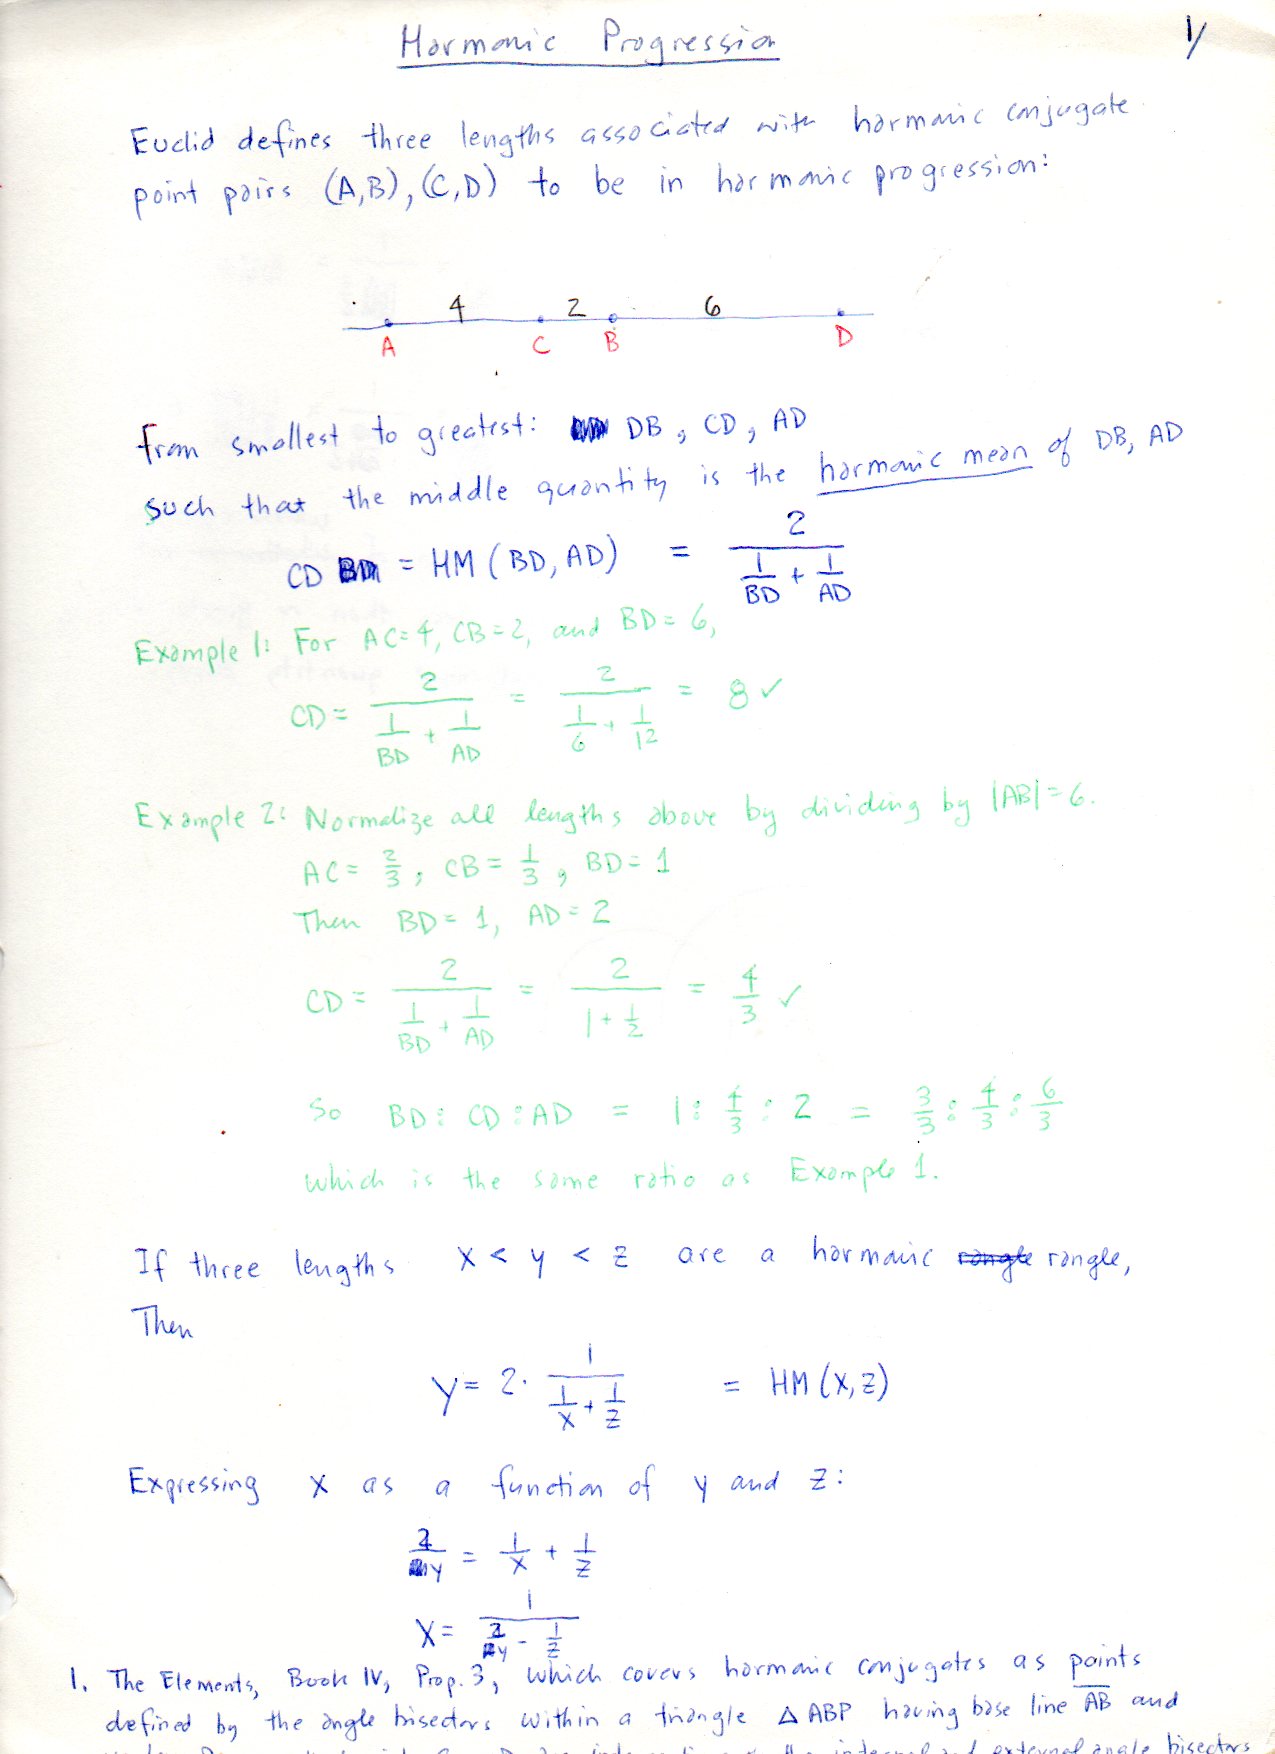 Harmonic Progression
1/
Euclid defines three lengths associated with harmonic conjugate
point pairs (A,B), (C,D) to be in harmonic progression:
4 2 6
A C B D
From smallest to greatest: DB, CD, AD
such that the middle quantity is the harmonic mean of DB, AD
CD = HM (BD, AD) = 2 / (1/BD + 1/AD)
Example 1: For AC=4, CB=2, and BD=6,
CD = 2 / (1/BD + 1/AD) = 2 / (1/6 + 1/12) = 8 ✓
Example 2: Normalize all lengths above by dividing by |AB|=6.
AC = 2/3, CB = 1/3, BD = 1
Then BD = 1, AD = 2
CD = 2 / (1/BD + 1/AD) = 2 / (1 + 1/2) = 4/3 ✓
So BD : CD : AD = 1 : 4/3 : 2 = 3/3 : 4/3 : 6/3
which is the same ratio as Example 1.
If three lengths x < y < z are a harmonic rangle,
Then
y = 2 · 1 / (1/x + 1/z) = HM (x, z)
Expressing x as a function of y and z:
2/y = 1/x + 1/z
x = 1 / (2/y - 1/z)
1. The Elements, Book IV, Prop. 3, which covers harmonic conjugates as points
defined by the angle bisectors within a triangle △ ABP having base line AB and
the internal and external angle bisectors